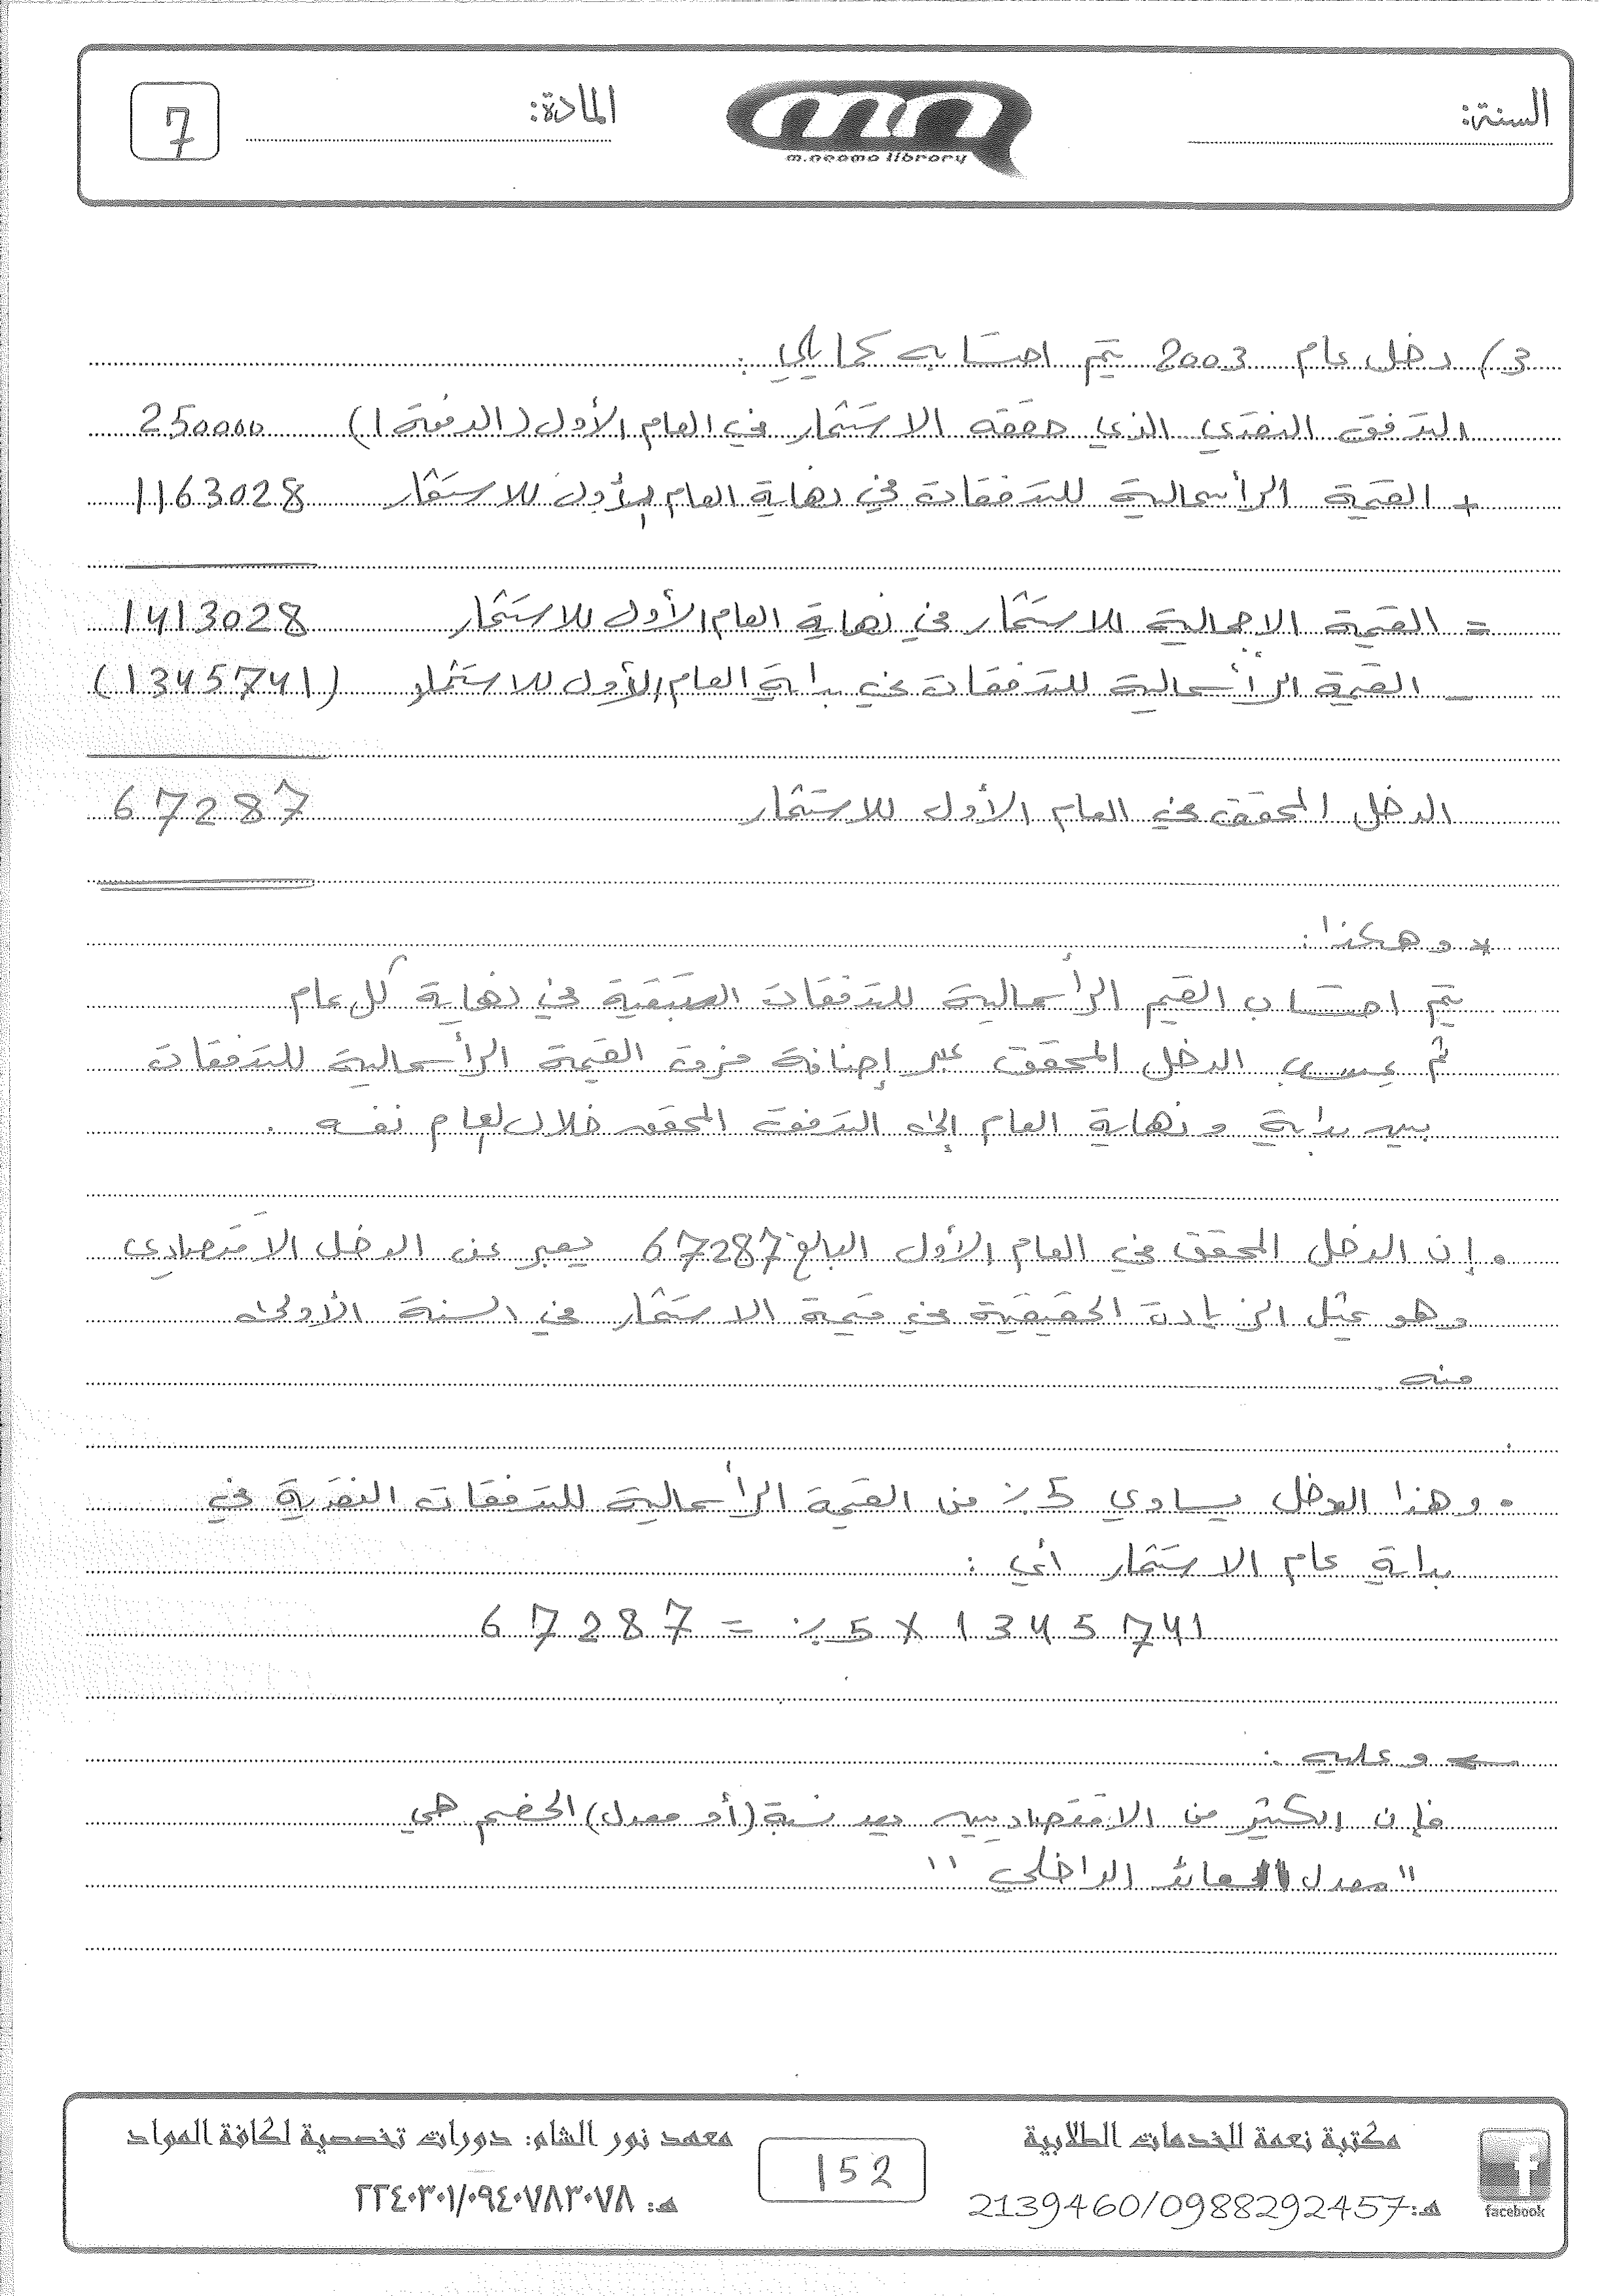 السنة:
mn
m.neama library
المادة:
7
3) دخل عام 2003 يتم احتسابه كما يلي :
التدفق النقدي الذي حققه الاستثمار في العام الأول (الدفعة 1) 250000
+ القيمة الرأسمالية للتدفقات في نهاية العام الأول للاستثمار 1163028
= القيمة الاجمالية للاستثمار في نهاية العام الأول للاستثمار 1413028
- القيمة الرأسمالية للتدفقات في بداية العام الأول للاستثمار (1345741)
الدخل المحقق في العام الأول للاستثمار 67287
* وهكذا :
يتم احتساب القيم الرأسمالية للتدفقات المتبقية في نهاية كل عام
ثم يحسب الدخل المحقق عبر إضافة فرق القيمة الرأسمالية للتدفقات
بين بداية ونهاية العام إلى التدفق المحقق خلال العام نفسه .
• إن الدخل المحقق في العام الأول البالغ 67287 يعبر عن الدخل الاقتصادي
وهو يمثل الزيادة الحقيقية في قيمة الاستثمار في السنة الأولى
منه .
• وهذا الدخل يساوي 5٪ من القيمة الرأسمالية للتدفقات النقدية في
بداية عام الاستثمار أي :
1345741 × 5٪ = 67287
← وعليه :
فإن الكثير من الاقتصاديين يعد نسبة (أو معدل) الخصم هي
" معدل العائد الداخلي "
مكتبة نعمة للخدمات الطلابية
هـ: 2139460/0988292457
facebook
152
معهد نور الشام: دورات تخصصية لكافة المواد
هـ: ٢٢٤٠٣٠١/٠٩٤٠٧٨٣٠٧٨